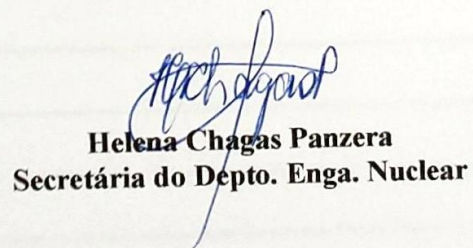 Helena Chagas Panzera
Secretária do Depto. Enga. Nuclear